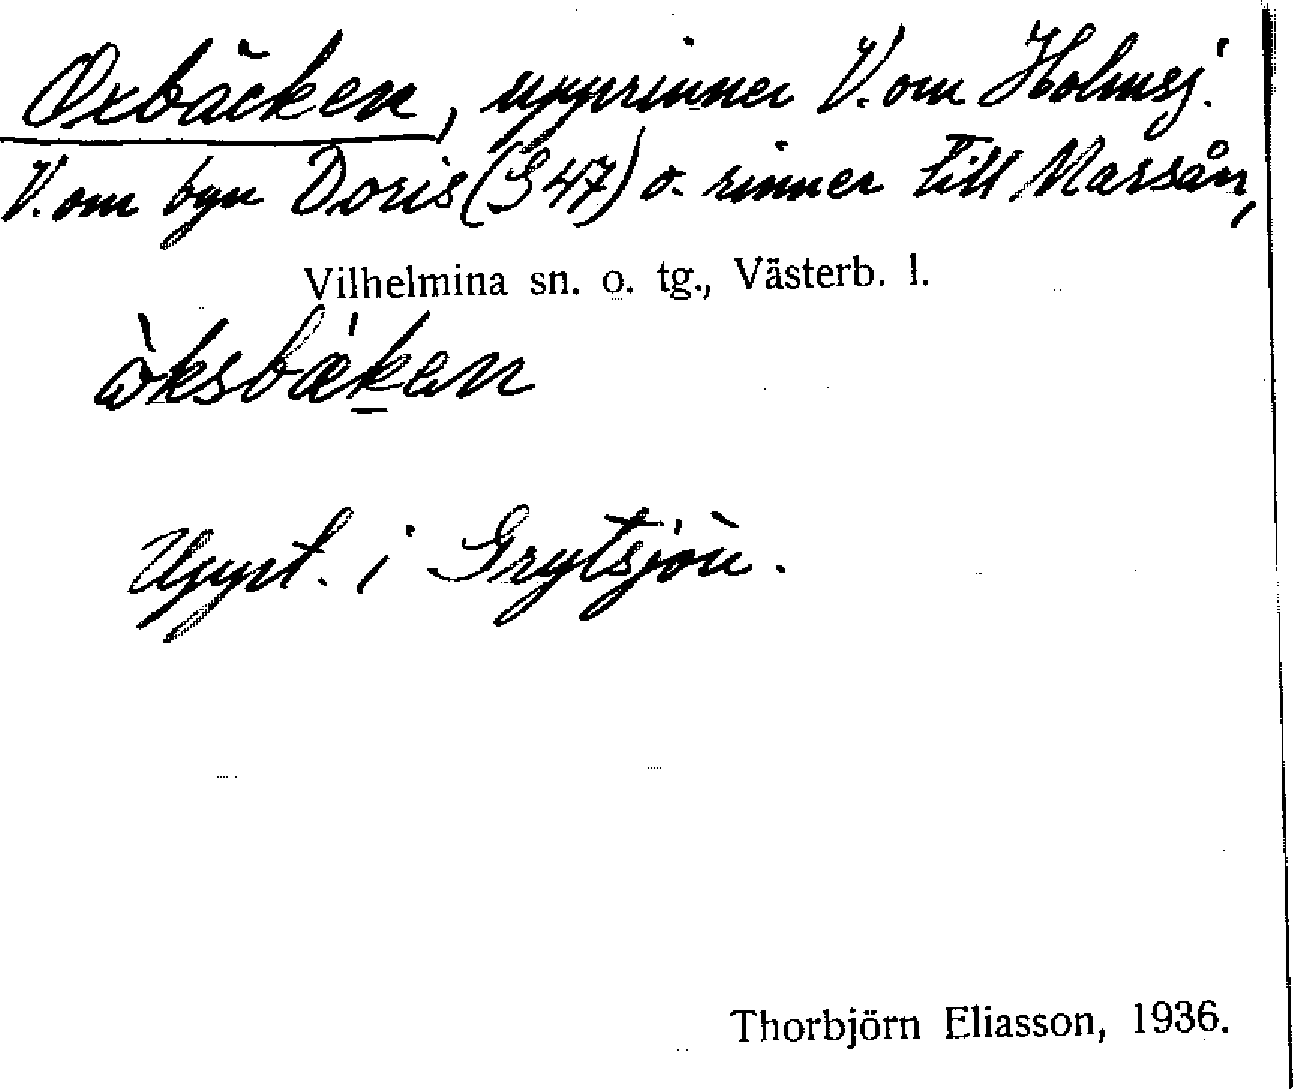 Oxbäcken, upprinner V. om Holmsj.
V. om byn Doris (S 47) o. rinner till Marsån,
Vilhelmina sn. o. tg., Västerb. l.
Uppt. i Grytsjön.
Thorbjörn Eliasson, 1936.